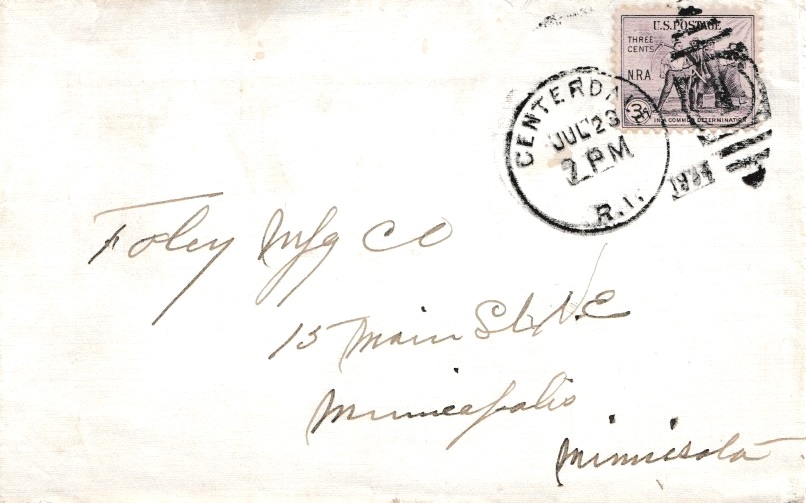 U.S. POSTAGE
THREE
CENTS
N.R.A.
3¢
IN A COMMON DETERMINATION
CENTERDALE
JUL 23
2 PM
R.I.
1934
Foley Mfg Co
15 Main St. N.E
Minneapolis
Minnisota